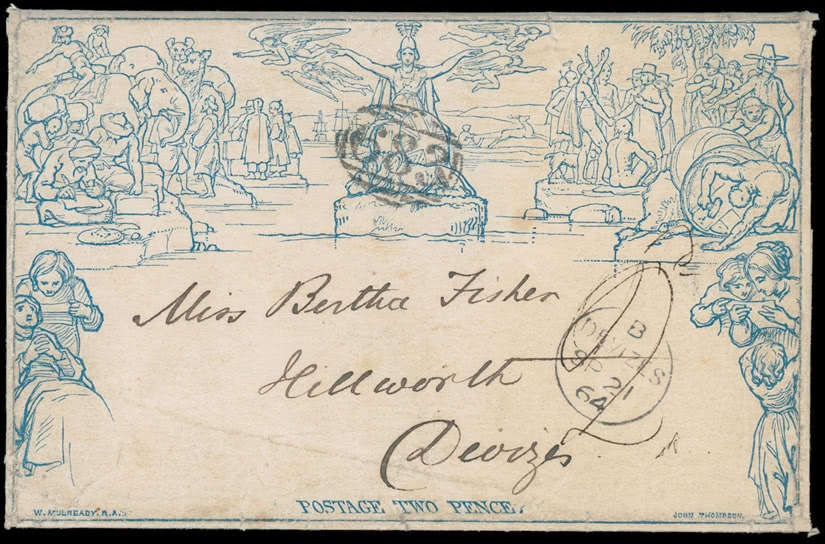 Miss Bertha Fisher
Hillworth
Devizes
B
DEVIZES
SP 21
64
POSTAGE TWO PENCE.
W. MULREADY. R.A.
JOHN THOMPSON.